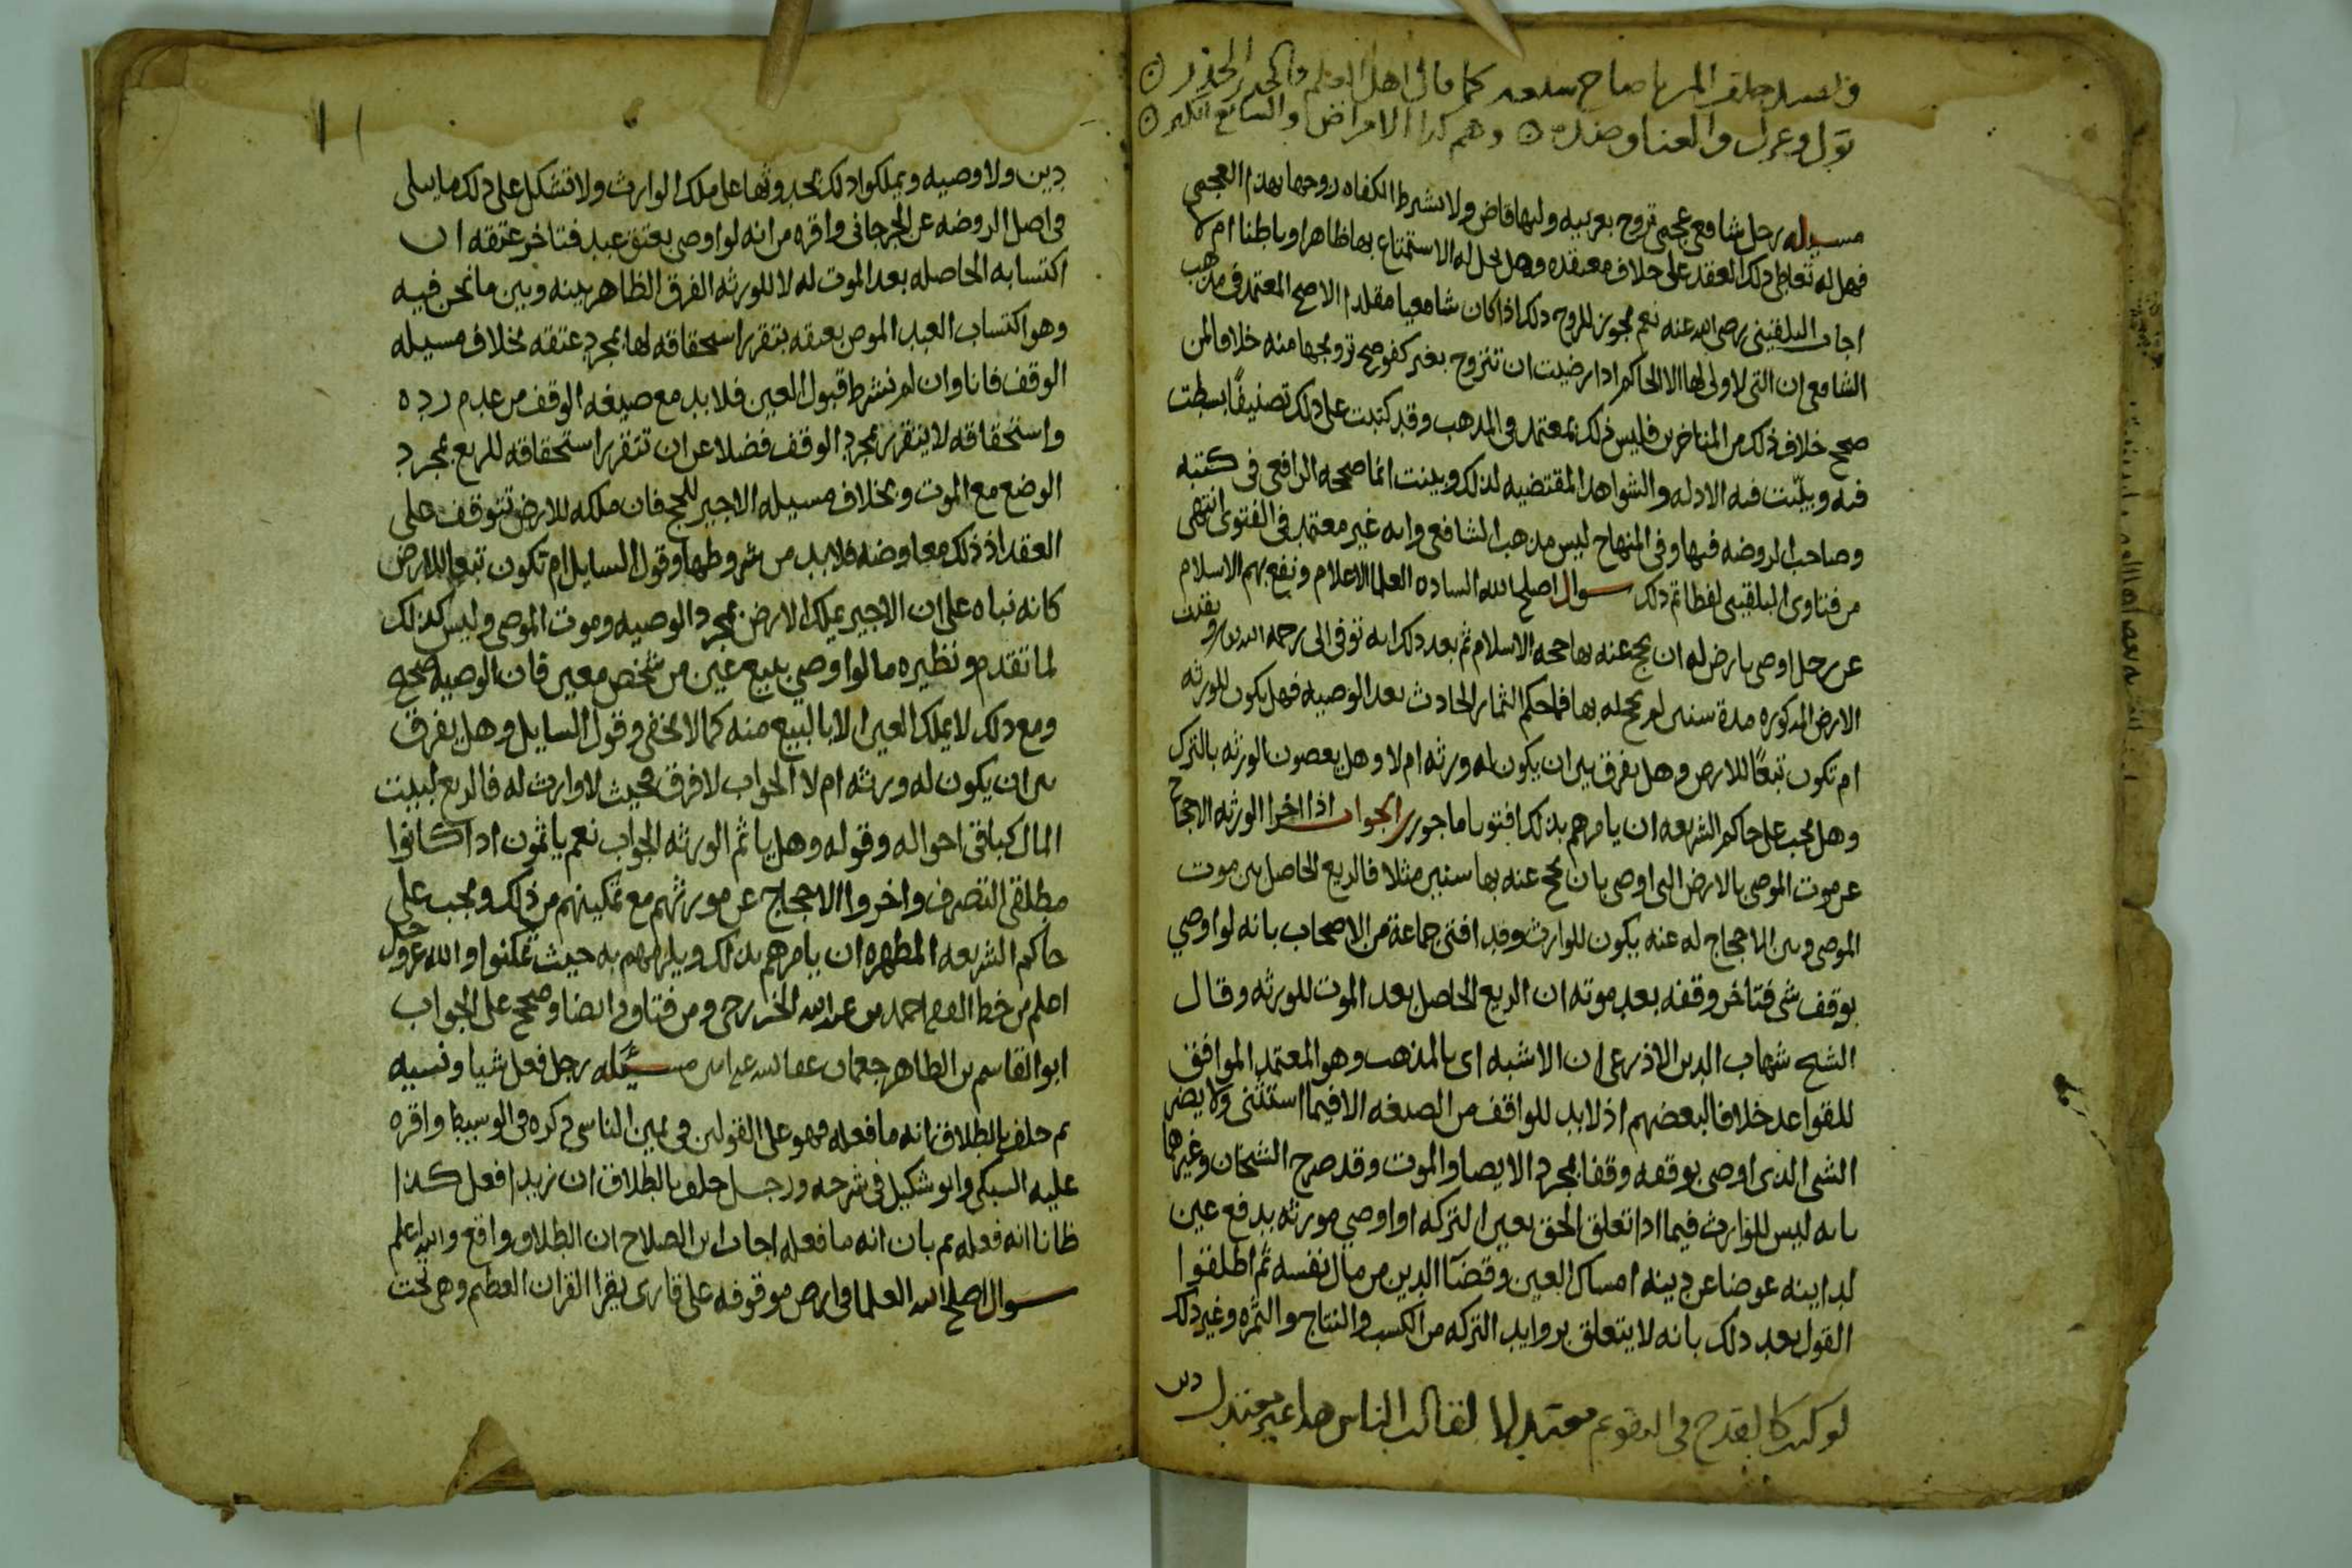 مسيله رجل شافعي عجمي تزوج بعربيه وليها قاض ولا بشرط الكفاه زوجها بهذا العجمي
فهل له تعاطي ذلك العقد على خلاف معتقده وهل يحل له الاستمتاع بها ظاهرا وباطنا ام لا
اجاب البلقيني رضي الله عنه نعم يجوز للزوج ذلك اذا كان شافعيا مقلدا الاصح المعتمد في مذهب
الشافعي ان التي لا ولي لها الا الحاكم اذا رضيت ان تتزوج بغير كفو صح تزويجها منه خلافا لمن
صحح خلاف ذلك من المتاخرين فليس ذلك بمعتمد في المذهب وقد كتبت على ذلك تصنيفًا بسطت
فيه وبيّنت فيه الادله والشواهد المقتضيه لذلك وبينت انما صححه الرافعي في كتبه
وصاحب الروضه فيها وفي المنهاج ليس مذهب الشافعي وانه غير معتمد في الفتوى انتهى
من فتاوى البلقيني لفظا تم ذلك سوال اصلح الله الساده العلما الاعلام ونفع بهم الاسلام
عن رجل اوصى بارض له ان يحج عنه بها حجه الاسلام ثم بعد ذلك انه توفي الى رحمه الله وبقيت
الارض المذكوره مدة سنين لم يحج له بها فما حكم الثمار الحادث بعد الوصيه فهل يكون للورثه
ام تكون تبعًا للارض وهل يفرق بين ان يكون له ورثه ام لا وهل يعصون الورثه بالترك
وهل يجب على حاكم الشريعه ان يامرهم بذلك افتونا ماجورين الجواب اذا اخرا الورثه الاحجاج
عن موت الموصي بالارض التي اوصى بان يحج عنه بها سنين مثلا فالريع الحاصل بين موت
الموصي وبين الاحجاج له عنه يكون للوارث وقد افتى جماعة من الاصحاب بانه لو اوصي
بوقف شي فتاخر وقفه بعد موته ان الريع الحاصل بعد الموت للورثه وقال
الشيخ شهاب الدين الاذرعي ان الاشبه اي بالمذهب وهو المعتمد الموافق
للقواعد خلافا لبعضهم اذ لابد للواقف من الصيغه الا فيما استثنى ولا يضر
الشي الذي اوصى بوقفه وقفا بمجرد الايصا والموت وقد صرح الشيخان وغيرهما
بانه ليس للوارث فيما اذا تعلق الحق بعين التركه او اوصي مورثه بدفع عين
لداينه عوضا عن دينه امساك العين وقضآ الدين من مال نفسه ثم اطلقوا
القول بعد ذلك بانه لا يتعلق بزوايد التركه من الكسب والنتاج والثمره وغير ذلك
معتدلا لقالت الناس هذا غير معتدل
دين ولا وصيه ويملكوا ذلك بحدوثها على ملك الوارث ولا تشكل على ذلك ما يملى
في اصل الروضه عن الجرجاني واقره من انه لو اوصى بعتق عبد فتاخر عتقه ان
اكتسابه الحاصله بعد الموت له لا للورثه الفرق الظاهر بينه وبين ما نحن فيه
وهو اكتساب العبد الموصى بعتقه بتقرر استحقاقه لها بمجرد عتقه بخلاف مسيله
الوقف فانا وان لم نشرط قبول العين فلابد مع صيغه الوقف من عدم رده
واستحقاقه لا يتقرر بمجرد الوقف فضلا عن ان تتقرر استحقاقه للريع بمجرد
الوضع مع الموت وبخلاف مسيله الاجير للحج فان ملكه للارض تتوقف على
العقد اذ ذلك معاوضه فلابد من شروطها وقول السايل ام تكون تبعا للارض
كانه نباه على ان الاجير يملك الارض بمجرد الوصيه وموت الموصي وليس كذلك
لما تقدم ونظيره ما لو اوصي ببيع عين من شخص معين فان الوصيه صحيحه
ومع ذلك لا يملك العين الا بالبيع منه كما لا يخفى وقول السايل وهل يفرق
بين ان يكون له ورثه ام لا الجواب لا فرق بحيث لا وارث له فالريع لبيت
المال كباقي احواله وقوله وهل ياثم الورثه الجواب نعم ياثمون اذا كانوا
مطلقي التصرف واخروا الاحجاج عن مورثهم مع تمكينهم من ذلك ويجب على
حاكم الشريعه المطهره ان يامرهم بذلك ويلزمهم به حيث تمكنوا والله عز وجل
اعلم من خط الفقيه احمد بن عبد الله الخزرجي ومن فتاوي ايضا وصحح على الجواب
ابو القاسم بن الطاهر جعمان عفا الله عنه امين مسئله رجل فعل شيا ونسيه
ثم حلف بالطلاق انه ما فعله فهو على القولين في يمين الناسي ذكره في الوسيط واقره
عليه السبكي وابو شكيل في شرحه ورجل حلف بالطلاق ان زيدا فعل كذا
ظانا انه فعله ثم بان انه ما فعله اجاب ابن الصلاح ان الطلاق واقع والله اعلم
سوال اصلح الله العلما في ارض موقوفه على قارى يقرا القران العظيم وهي تحت